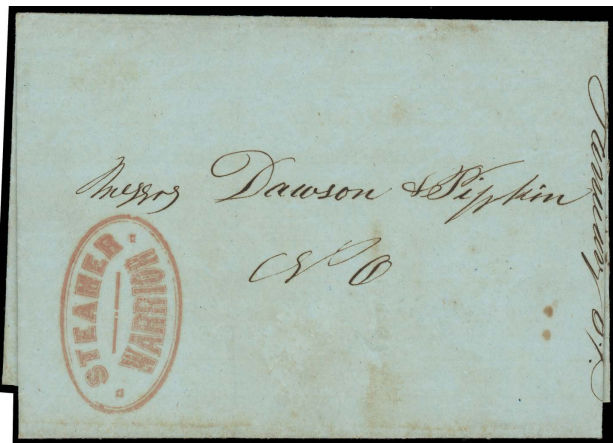 Messrs Dawson & Pipkin
N O
STEAMER
WARRIOR